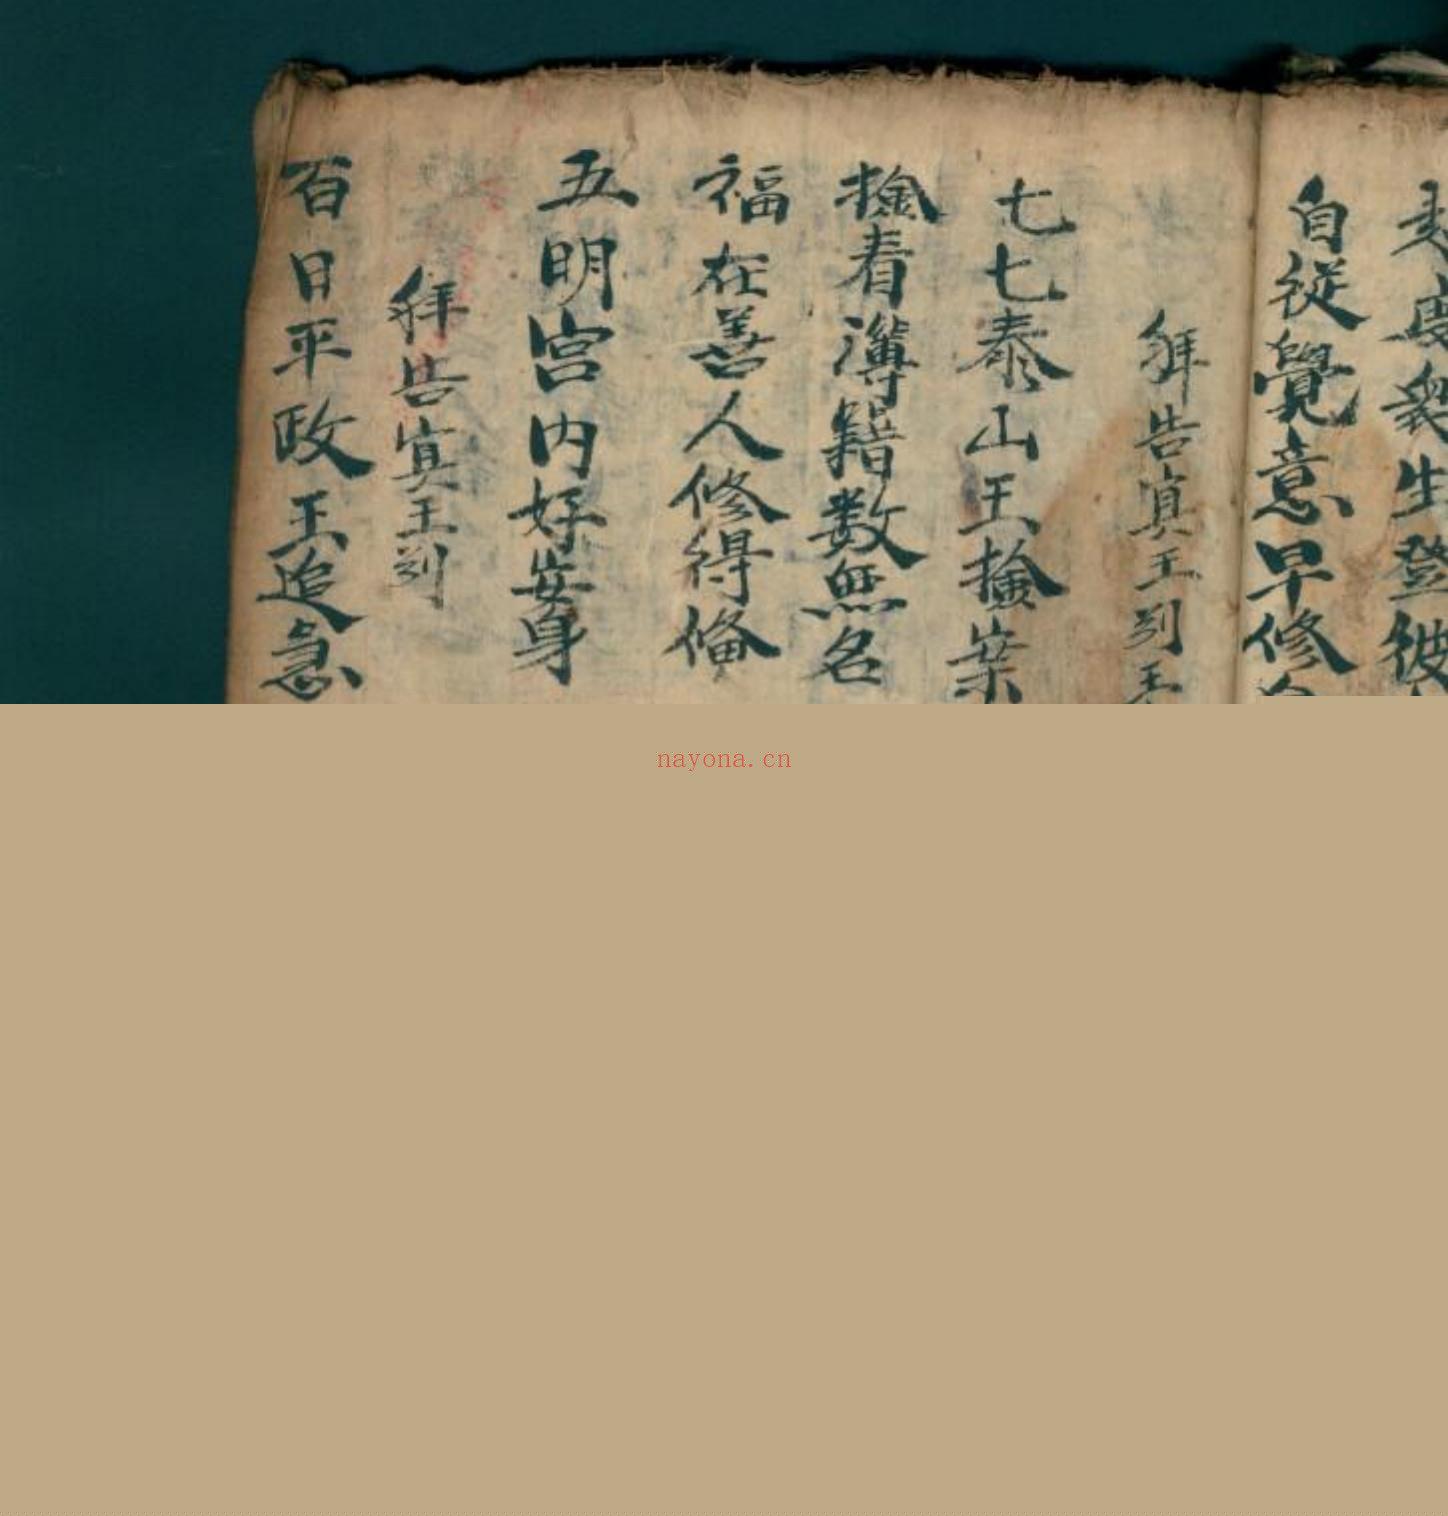 度衆生登彼
自從覺意早修
拜告㝠王列王
七七泰山王撿案
撿看簿籍数無名
福在善人修得俻
五明宫内好安身
拜告㝠王列
百日平政王追急
nayona.cn